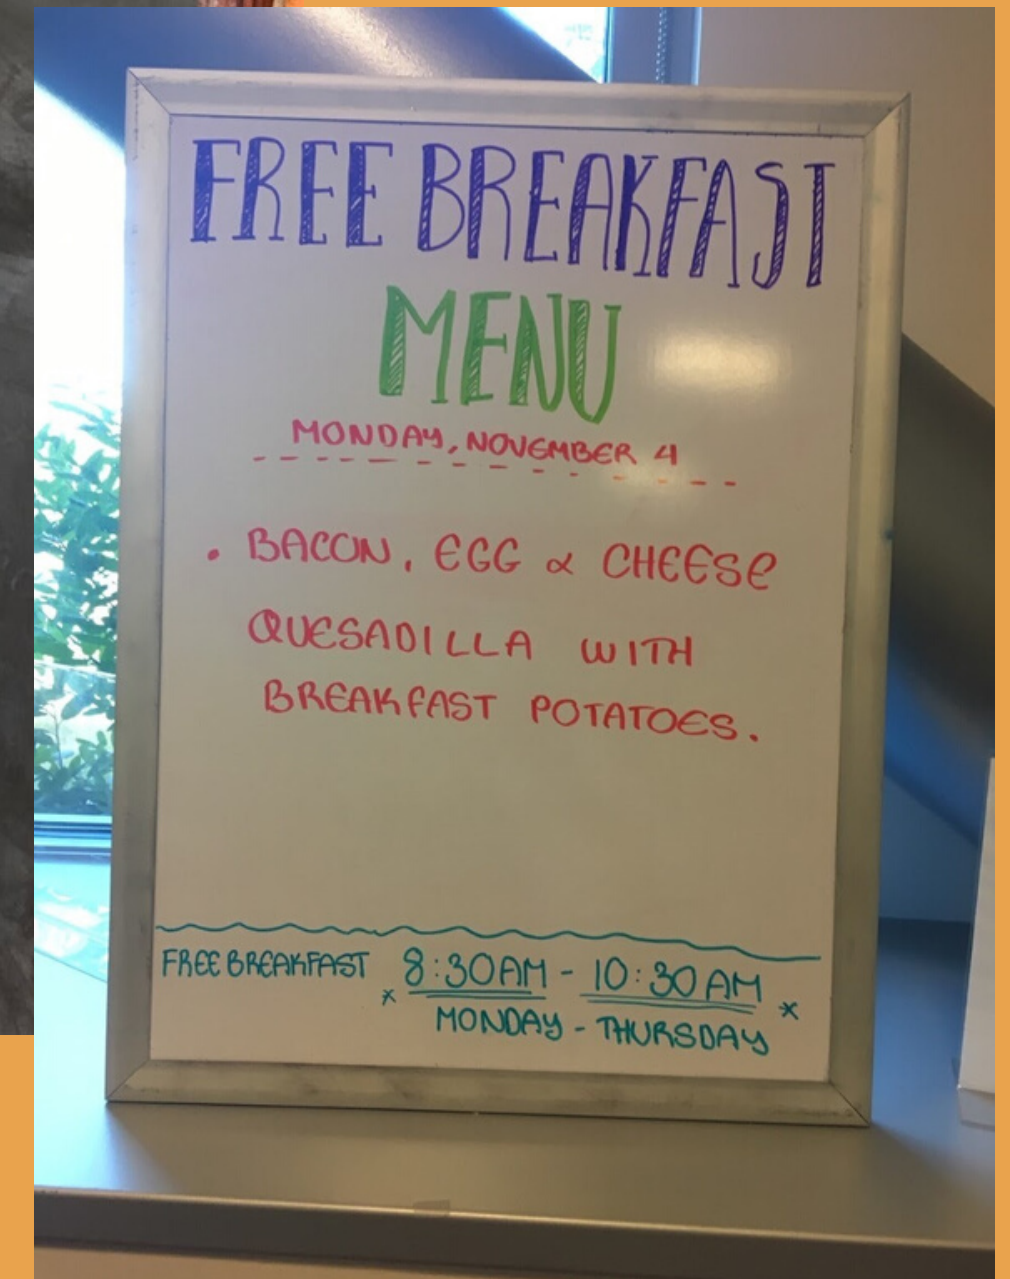 FREE BREAKFAST
MENU
MONDAY, NOVEMBER 4
• BACON, EGG & CHEESE
QUESADILLA WITH
BREAKFAST POTATOES.
FREE BREAKFAST * 8:30AM - 10:30AM *
MONDAY - THURSDAY